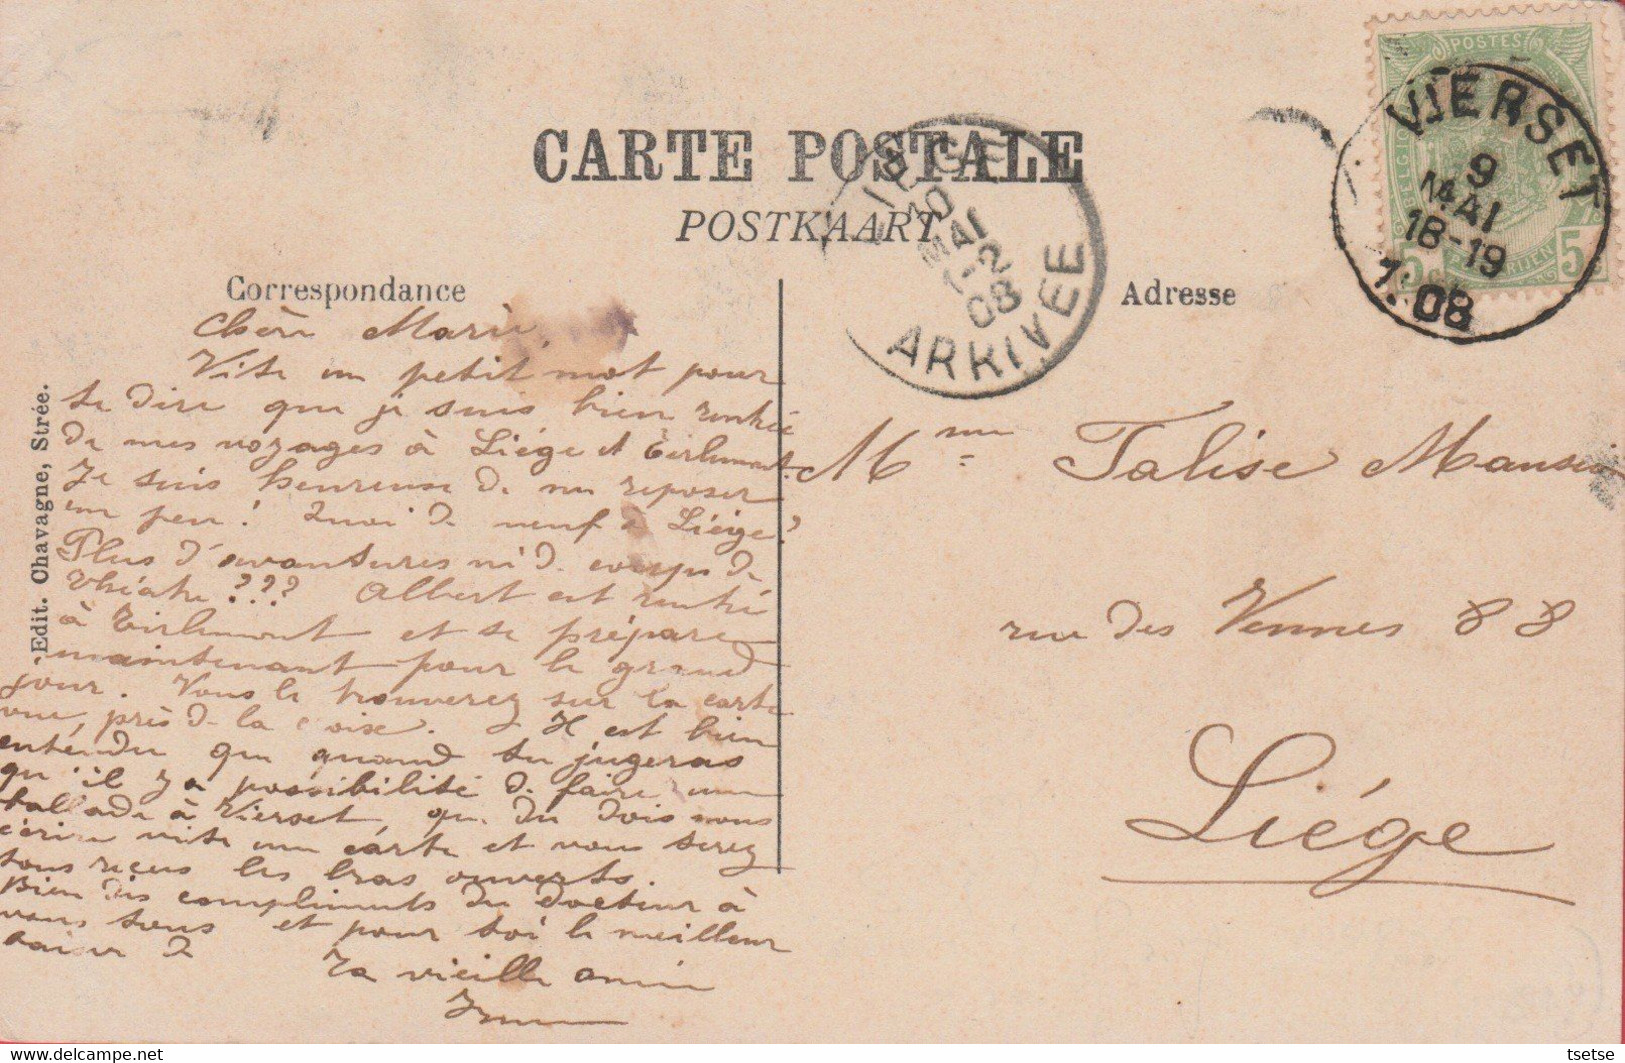 CARTE POSTALE
POSTKAART
Correspondance
Adresse
Edit. Chavagne, Strée.
POSTES
BELGIQUE
5
5
VIERSET
9
MAI
18-19
08
LIEGE
10
MAI
1-2
08
ARRIVEE
Chère Marie,
Vite un petit mot pour
te dire que je suis bien rentrée
de mes voyages à Liége et Tirlemont.
Je suis heureuse de me reposer
un peu! Quoi de neuf à Liége?
Plus d'avantures ni de corps de
théâtre??? Albert est rentré
à Tirlemont et se prépare
maintenant pour le grand
jour. Vous le trouverez sur la carte
vue, près de la croix. Il est bien
entendu que quand tu jugeras
qu'il y a possibilité de faire une
ballade à Vierset, que tu dois nous
écrire vite une carte et vous serez
tous reçus les bras ouverts.
Bien des compliments du docteur à
vous tous et pour toi le meilleur
baiser de
Ta vieille amie
Mme Talise Mansion
rue des Vennes 88
Liége
tsetse